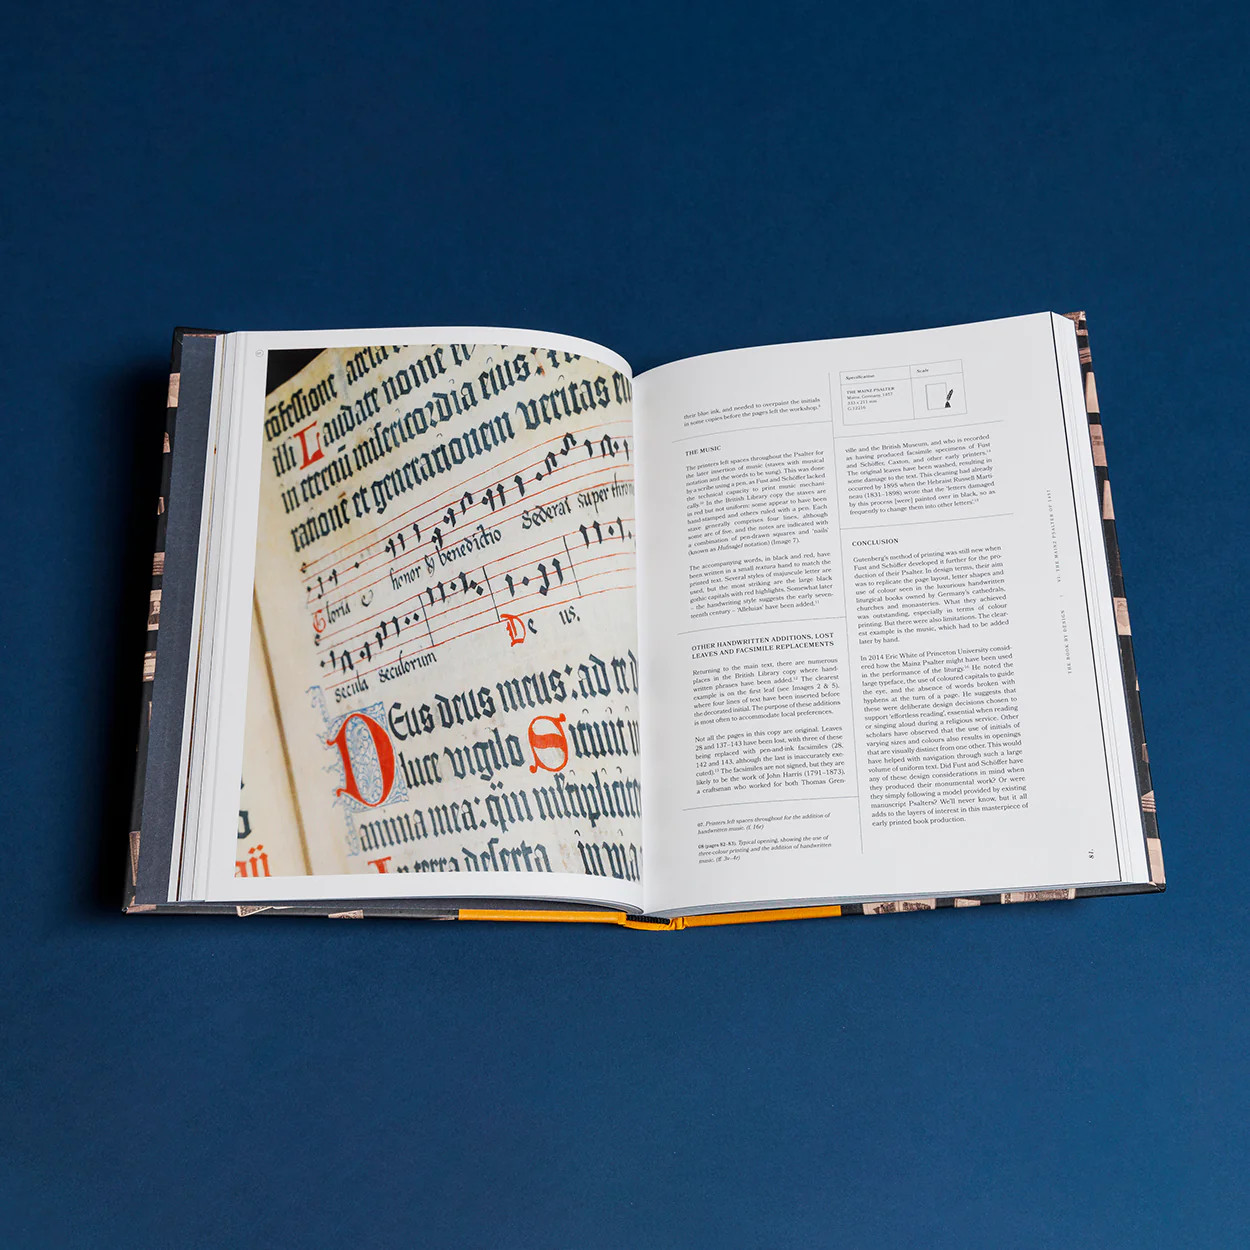 cōfessione
illi Laudate nomē ei
in eternū misericordia eius:
ratione et generationem veritas
Gloria
honor & benedictio
Sederat super thro
Secula Seculorum
De us.
Deus deus meus: ad te
luce vigilo Sitiuit
anima mea: q̄m mltiplicite
In terra deserta in
their blue ink, and needed to overpaint the initials
in some copies before the pages left the workshop.⁹
THE MUSIC
The printers left spaces throughout the Psalter for
the later insertion of music (staves with musical
notation and the words to be sung). This was done
by a scribe using a pen, as Fust and Schöffer lacked
the technical capacity to print music mechani
cally.¹⁰ In the British Library copy the staves are
in red but not uniform: some appear to have been
hand-stamped and others ruled with a pen. Each
stave generally comprises four lines, although
some are of five, and the notes are indicated with
a combination of pen-drawn squares and 'nails'
(known as Hufnagel notation) (Image 7).
The accompanying words, in black and red, have
been written in a small textura hand to match the
printed text. Several styles of majuscule letter are
used, but the most striking are the large black
gothic capitals with red highlights. Somewhat later
– the handwriting style suggests the early seven-
teenth century – 'Alleluias' have been added.¹¹
OTHER HANDWRITTEN ADDITIONS, LOST
LEAVES AND FACSIMILE REPLACEMENTS
Returning to the main text, there are numerous
places in the British Library copy where hand-
written phrases have been added.¹² The clearest
example is on the first leaf (see Images 2 & 5),
where four lines of text have been inserted before
the decorated initial. The purpose of these additions
is most often to accommodate local preferences.
Not all the pages in this copy are original. Leaves
28 and 137–143 have been lost, with three of these
being replaced with pen-and-ink facsimiles (28,
142 and 143, although the last is inaccurately exe-
cuted).¹³ The facsimiles are not signed, but they are
likely to be the work of John Harris (1791–1873),
a craftsman who worked for both Thomas Gren-
07. Printers left spaces throughout for the addition of
handwritten music. (f. 16r)
08 (pages 82–83). Typical opening, showing the use of
three-colour printing and the addition of handwritten
music. (ff. 3v–4r)
Specification
Scale
THE MAINZ PSALTER
Mainz, Germany, 1457
ville and the British Museum, and who is recorded
as having produced facsimile specimens of Fust
and Schöffer, Caxton, and other early printers.¹⁴
The original leaves have been washed, resulting in
some damage to the text. This cleaning had already
occurred by 1895 when the Hebraist Russell Marti
neau (1831–1898) wrote that the 'letters damaged
by this process [were] painted over in black, so as
frequently to change them into other letters'.¹⁵
CONCLUSION
Gutenberg's method of printing was still new when
Fust and Schöffer developed it further for the pro-
duction of their Psalter. In design terms, their aim
was to replicate the page layout, letter shapes and
use of colour seen in the luxurious handwritten
liturgical books owned by Germany's cathedrals,
churches and monasteries. What they achieved
was outstanding, especially in terms of colour
printing. But there were also limitations. The clear-
est example is the music, which had to be added
later by hand.
In 2014 Eric White of Princeton University consid-
ered how the Mainz Psalter might have been used
in the performance of the liturgy.¹⁶ He noted the
large typeface, the use of coloured capitals to guide
the eye, and the absence of words broken with
hyphens at the turn of a page. He suggests that
these were deliberate design decisions chosen to
support 'effortless reading', essential when reading
or singing aloud during a religious service. Other
scholars have observed that the use of initials of
varying sizes and colours also results in openings
that are visually distinct from one other. This would
have helped with navigation through such a large
volume of uniform text. Did Fust and Schöffer have
any of these design considerations in mind when
they produced their monumental work? Or were
they simply following a model provided by existing
manuscript Psalters? We'll never know, but it all
adds to the layers of interest in this masterpiece of
early printed book production.
THE BOOK BY DESIGN
THE MAINZ PSALTER OF 1457
81.